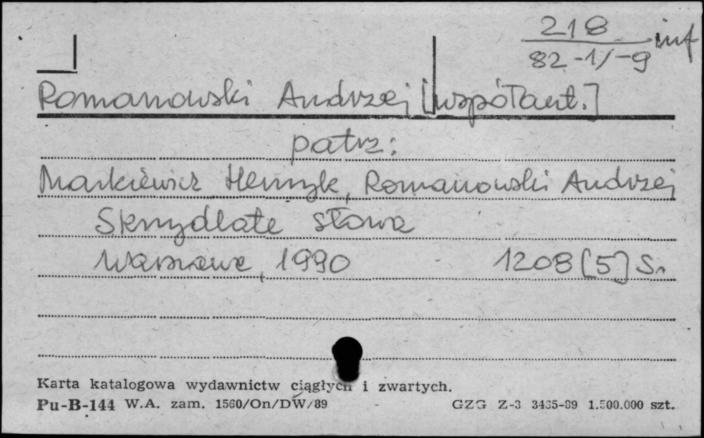 218
82-1/-9 inf
Romanowski Andrzej [współaut.]
patrz:
Markiewicz Henryk, Romanowski Andrzej
Skrzydlate słowa
Warszawa, 1990 1208 [5] S.
Karta katalogowa wydawnictw ciągłych i zwartych.
Pu-B-144 W.A. zam. 1560/On/DW/89 GZG Z-3 3435-89 1.500.000 szt.